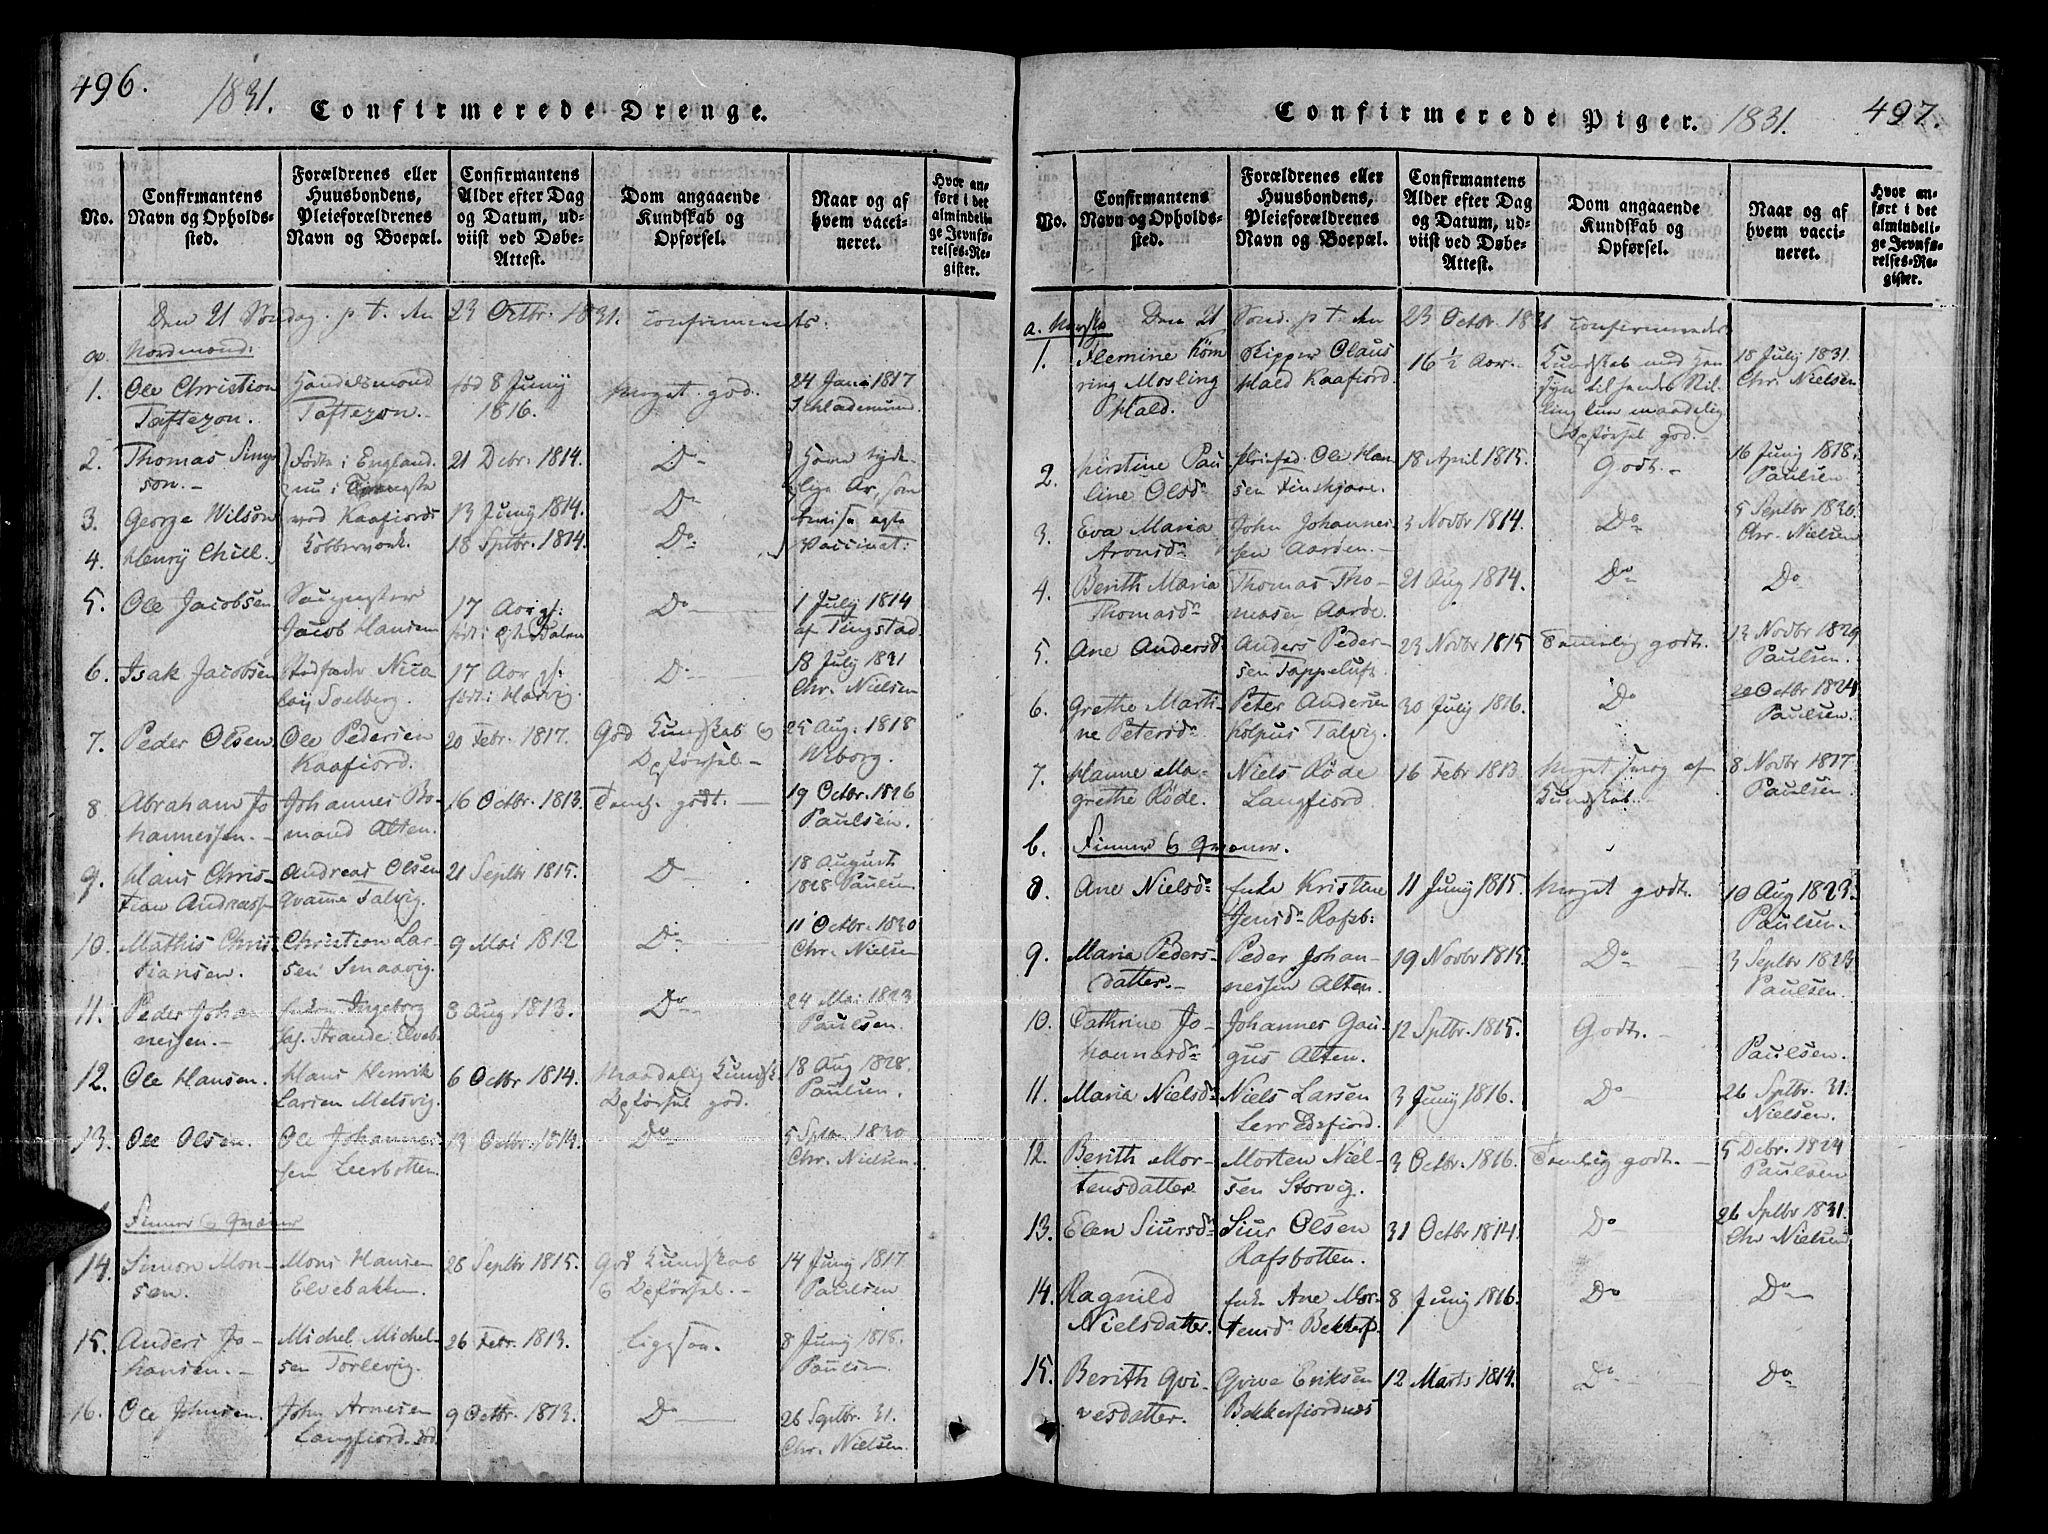 496.
1831.
Confirmerede Drenge.
No.
Confirmantens
Navn og Opholds-
sted.
Forældrenes eller
Huusbondens,
Pleieforældrenes
Navn og Boepæl.
Confirmantens
Alder efter Dag
og Datum, ud-
viist ved Døbe-
Attest.
Dom angaaende
Kundskab og
Opførsel.
Naar og af
hvem vacci-
neret.
Hvor an-
ført i det
almindeli-
ge Jevnfø-
relses-Re-
gister.
Den 21 Søndag p. t. den 23 Octbr. 1831. confirmeredes:
a. Nordmænd:
1. Ole Christian
Taftezon.
Handelsmand
Taftezon.
fød 8 Junij
1816.
Meget god.
24 Juni 1817
2. Thomas Simp
son.
Fødte i England.
nu i
ved Kaafiords
Kobberværk.
21 Debr. 1814.
Do
Have tyde-
lige Ar, som
ægte
Vaccinat:
3. George Wilson
13 Junij 1814.
Do
4. Henry Chill.
18 Sptbr. 1814.
Do
5. Ole Jacobsen
Jacob Hansen
17 Aar gl:
Do
1 July 1814
af Tingstad.
6. Isak Jacobsen
Nico
laij Soelberg.
17 Aar gl:
Do
18 July 1831
Chr. Nielsen
7. Peder Olsen
Ole Pedersen
Kaafiord.
20 Febr. 1817.
God Kundskab og
Opførsel.
25 Aug. 1818
Wiborg.
8 Abraham Jo
hannessen.
Johannes Bo
mand Alten.
16 Octbr. 1813.
Teml. godt.
19 Octbr. 1826
Paulsen.
9. Hans Chris-
tian Andreass
Andreas Olsen
Qvanne Talvig.
21 Septbr 1815.
Do
18 August
1828 Paulsen
10. Mathis Chris-
tiansen.
Christian Lar-
sen Smaavig.
9 Mai 1812
Do
11 Octbr. 1830
Chr. Nielsen
11. Peder Johan
nessen.
Enken Ingeborg
Strande Elveb.
8 Aug 1813.
Do
24 Mai 1823
Paulsen.
12. Ole Hansen.
Hans Henrik
Larsen Melsvig.
6 Octbr 1814.
Maadelig Kundsk.
Opførsel god.
18 Aug 1828.
Paulsen.
13. Ole Olsen.
Ole Johannes
sen Leerbotten.
13 Octbr. 1814.
Do
5 Sptbr 1830
Chr. Nielsen.
Finner og Qvæner
14. Simon Mon-
sen.
Mons Hansen
Elvebakken.
28 Septbr 1815.
God Kundskab
og Opførsel.
14 Junij 1817
Paulsen
15. Anders Jo-
hansen.
Michel Michel-
sen Torlevig.
26 Febr. 1813.
Ligesaa.
8 Junij 1818.
Paulsen
16. Ole Johnsen.
John Arnesen
Langfiord.
9 Octbr. 1813.
Do
26 Sptbr. 31.
Chr. Nielsen.
Confirmerede Piger.
1831.
497.
No.
Confirmantens
Navn og Opholds-
sted.
Forældrenes eller
Huusbondens,
Pleieforældrenes
Navn og Boepæl.
Confirmantens
Alder efter Dag
og Datum, ud-
viist ved Døbe-
Attest.
Dom angaaende
Kundskab og
Opførsel.
Naar og af
hvem vacci-
neret.
Hvor an-
ført i det
almindeli-
ge Jevnfø-
relses-Re-
gister.
a. Norske Den 21 Sønd. p. t. den 23 Octbr. 1831 confirmeredes
1. Flemine Køm
ring Mosling
Hald.
Skipper Claus
Hald Kaafiord.
16 1/2 Aar.
Kundskab med Hen
syn til hendes Stil-
ling kun maadelig
Opførsel god.
18 July 1831.
Chr. Nielsen
2. Kirstine Pau
line Olsdr
Ole Han
sen
18 April 1815.
Godt.
16 Junij 1818.
Paulsen
3. Eva Maria
Aronsdr
John Johannes-
sen Aarøen.
3 Novbr 1814.
Do
5 Septbr 1830.
Chr. Nielsen
4. Berith Maria
Thomasdr
Thomas Tho-
masen Aarøe.
21 Aug 1814.
Do
Do
5. Ane Andersdr
Anders Peder-
sen Toppeluft
23 Novbr 1815
Temmelig godt.
13 Novbr 1829
Paulsen.
6. Grethe Marti-
ne Petersdr
Peter Andersen
Kolpus Talvig.
30 July 1816.
Do
20 Octbr 1824
Paulsen.
7. Hanne Ma-
grethe Røde.
Niels Røde
Langfiord
16 Febr 1813
Meget svag af
Kundskab.
8 Novbr 1817
Paulsen.
b. Finner og Qvæner.
8. Ane Nielsdr
Enke Kristine
Jensdr Rafsb:
11 Junij 1815.
Meget godt.
10 Aug 1823.
Paulsen.
9. Maria Peders-
datter.
Peder Johan-
nessen Alten.
19 Novbr 1815.
Do
3 Septbr 1823
Paulsen.
10. Cathrine Jo-
hannasdr
Johannes Gau-
gus Alten.
12 Sptbr. 1815.
Godt.
Paulsen.
11. Maria Nielsdr
Niels Larsen
3 Junij 1816.
Do
26 Sptbr. 31.
Nielsen.
12. Berith Mor-
tensdatter
Morten Niel-
sen Storvig.
3 Octbr. 1816.
Temlig godt.
5 Debr. 1824
Paulsen
13. Elen Siursdr
Siur Olsen
Rafsbotten.
31 Octbr 1814.
Do
26 Sptbr 1831.
Chr Nielsen
14. Ragnild
Nielsdatter.
Enke Ane Mor-
tensdr Bekkerf.
8 Junij 1816.
Do
Do
15. Berith Qvi-
vesdatter.
Qvive Eriksen
Bekkerfiordnæs
12 Marts 1814.
Do
Do